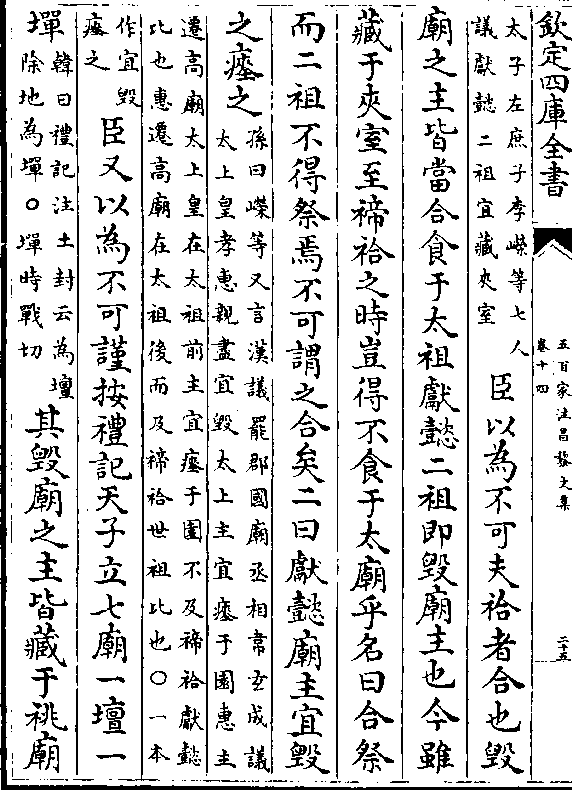 欽定四庫全書
五百家注昌黎文集
卷十四
二十五
太子左庶子李嶸等七人
議獻懿二祖宜藏夾室
臣以為不可夫祫者合也毀
廟之主皆當合食于太祖獻懿二祖即毀廟主也今雖
藏于夾室至禘祫之時豈得不食于太廟乎名曰合祭
而二祖不得祭焉不可謂之合矣二曰獻懿廟主宜毀
之瘞之
孫曰嶸等又言漢議罷郡國廟丞相韋玄成議
太上皇孝惠親盡宜毀太上主宜瘞于園惠主
遷高廟太上皇在太祖前主宜瘞于園不及禘祫獻懿
比也惠遷高廟在太祖後而及禘祫世祖比也○一本
作宜毀
瘞之
臣又以為不可謹按禮記天子立七廟一壇一
墠
韓曰禮記注土封云為壇
除地為墠○墠時戰切
其毀廟之主皆藏于祧廟